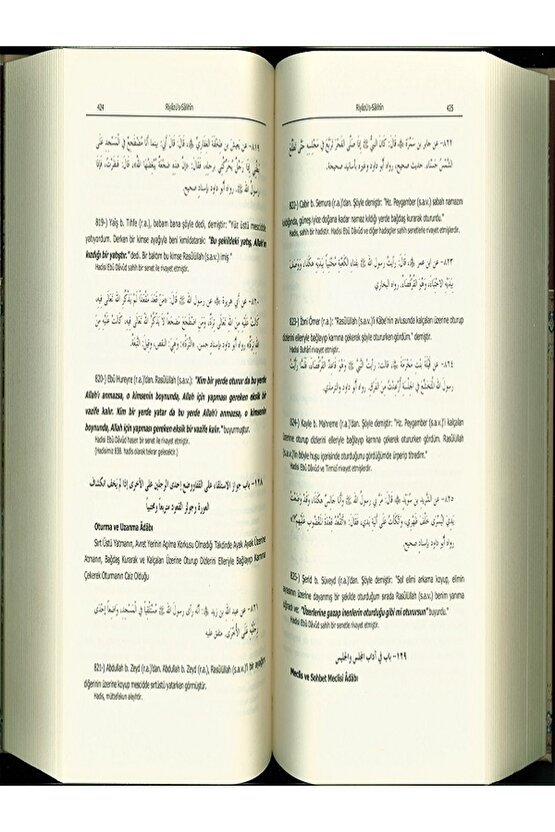 424
Riyâzü's-Sâlihîn
٨١٩- عن يعيش بن طخفة الغفاري قال: قال أبي: بينما أنا مضطجع في المسجد على
بطني إذا رجل يحركني برجله، فقال: «إن هذه ضجعة يبغضها الله» قال: فنظرت، فإذا
رسول الله ﷺ. رواه أبو داود بإسناد صحيح.
819-) Yaîş b. Tihfe (r.a.), babam bana şöyle dedi, demiştir: "Yüz üstü mescidde
yatıyordum. Derken bir kimse ayağıyla beni kımıldatarak: "Bu şekildeki yatış, Allah'ın
kızdığı bir yatıştır." dedi. Bir baktım bu kimse Rasûlüllah (s.a.v.) imiş "
Hadisi Ebû Dâvûd sahih bir senet ile rivayet etmiştir.
٨٢٠- عن أبي هريرة عن رسول الله ﷺ قال: «من قعد مقعدا لم يذكر الله تعالى فيه،
كانت عليه من الله تعالى ترة، ومن اضطجع مضجعا لا يذكر الله تعالى فيه، كانت عليه من
الله ترة». رواه أبو داود بإسناد حسن. «الترة»: وهي: النقص، وقيل: التبعة.
820-) Ebû Hureyre (r.a.)'dan. Rasûlüllah (s.a.v.): "Kim bir yerde oturur da bu yerde
Allah'ı anmazsa, o kimsenin boynunda, Allah için yapması gereken eksik bir
vazife kalır. Kim bir yerde yatar da bu yerde Allah'ı anmazsa, o kimsenin
boynunda, Allah için yapması gereken eksik bir vazife kalır." buyurmuştur.
Hadisi Ebû Dâvûd hasen bir senet ile rivayet etmiştir.
[Hadisimiz 838. hadis olarak tekrar gelecektir.]
١٢٨- باب جواز الاستلقاء على القفا ووضع إحدى الرجلين على الأخرى إذا لم يخف انكشاف
العورة وجواز القعود متربعا ومحتبيا
Oturma ve Uzanma Âdâbı
Sırt Üstü Yatmanın, Avret Yerinin Açılma Korkusu Olmadığı Takdirde Ayak Ayak Üzerine
Atmanın, Bağdaş Kurarak ve Kalçaları Üzerine Oturup Dizlerin Elleriyle Bağlayıp Karnına
Çekerek Oturmanın Caiz Olduğu
٨٢١- عن عبد الله بن زيد أنه رأى رسول الله ﷺ مستلقيا في المسجد، واضعا إحدى
رجليه على الأخرى. متفق عليه
821-) Abdullah b. Zeyd (r.a.)'dan. Abdullah b. Zeyd (r.a.), Rasûlüllah (s.a.v.)'i bir ayağını
diğerinin üzerine koyup mescidde sırtüstü yatarken görmüştür.
Hadis, müttefekun aleyhtir.
Riyâzü's-Sâlihîn
425
٨٢٢- عن جابر بن سمرة قال: كان النبي ﷺ إذا صلى الفجر تربع في مجلسه حتى تطلع
الشمس حسناء. حديث صحيح، رواه أبو داود وغيره بأسانيد صحيحة.
822-) Cabir b. Semura (r.a.)'dan. Şöyle demiştir: "Hz. Peygamber (s.a.v.) sabah namazını
kıldığında, güneş iyice doğana kadar namaz kıldığı yerde bağdaş kurarak otururdu."
Hadis, sahih bir hadistir. Hadisi Ebû Dâvûd ve diğer hadisçiler sahih senetlerle rivayet etmişlerdir.
٨٢٣- عن ابن عمر قال: رأيت رسول الله ﷺ بفناء الكعبة محتبيا بيديه هكذا، ووصف
بيديه الاحتباء، وهو القرفصاء. رواه البخاري
823-) İbni Ömer (r.a.): "Rasûlüllah (s.a.v.)'i Kâbe'nin avlusunda kalçaları üzerine oturup
dizlerini elleriyle bağlayıp karnına çekerek şöyle otururken gördüm." demiştir.
Hadisi Buhârî rivayet etmiştir.
٨٢٤- عن قيلة بنت مخرمة قالت: رأيت النبي ﷺ وهو قاعد القرفصاء، فلما رأيت
رسول الله المتخشع في الجلسة أرعدت من الفرق. رواه أبو داود والترمذي.
824-) Kayle b. Mahreme (r.a.)'dan. Şöyle demiştir: "Hz. Peygamber (s.a.v.)'i kalçaları
üzerine oturup dizlerini elleriyle bağlayıp karnına çekerek otururken gördüm. Rasûlüllah
(s.a.v.)'in böyle huşu içerisinde oturduğunu gördüğümde ürperip titredim."
Hadisi Ebû Dâvûd ve Tirmizî rivayet etmişlerdir.
٨٢٥- عن الشريد بن سويد قال: مر بي رسول الله ﷺ وأنا جالس هكذا، وقد وضعت
يدي اليسرى خلف ظهري، واتكأت على ألية يدي، فقال: «أتقعد قعدة المغضوب عليهم؟»
رواه أبو داود بإسناد صحيح.
825-) Şerîd b. Süveyd (r.a.)'dan. Şöyle demiştir: "Sol elimi arkama koyup, elimin
ayasının üzerine dayanmış bir şekilde oturduğum sırada Rasûlüllah (s.a.v.) benim yanıma
uğradı ve: "Üzerlerine gazap inenlerin oturduğu gibi mi oturursun" buyurdu."
Hadisi Ebû Dâvûd sahih bir senetle rivayet etmiştir.
١٢٩- باب في آداب المجلس والجليس
Meclis ve Sohbet Meclisi Âdâbı